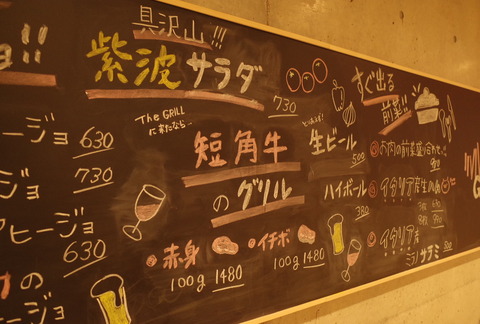 ョ!!
ージョ 630
730
アヒージョ
630
の
ージョ
具沢山!!
紫波サラダ
730
The GRILL
に来たなら…
短角牛
のグリル
赤身
100g 1480
イチボ
100g 1480
生ビール
500
ハイボール
380
すぐ出る
前菜!!
お肉の前菜盛合せ
イタリア産生ハム
イタリア産
ミラノサラミ